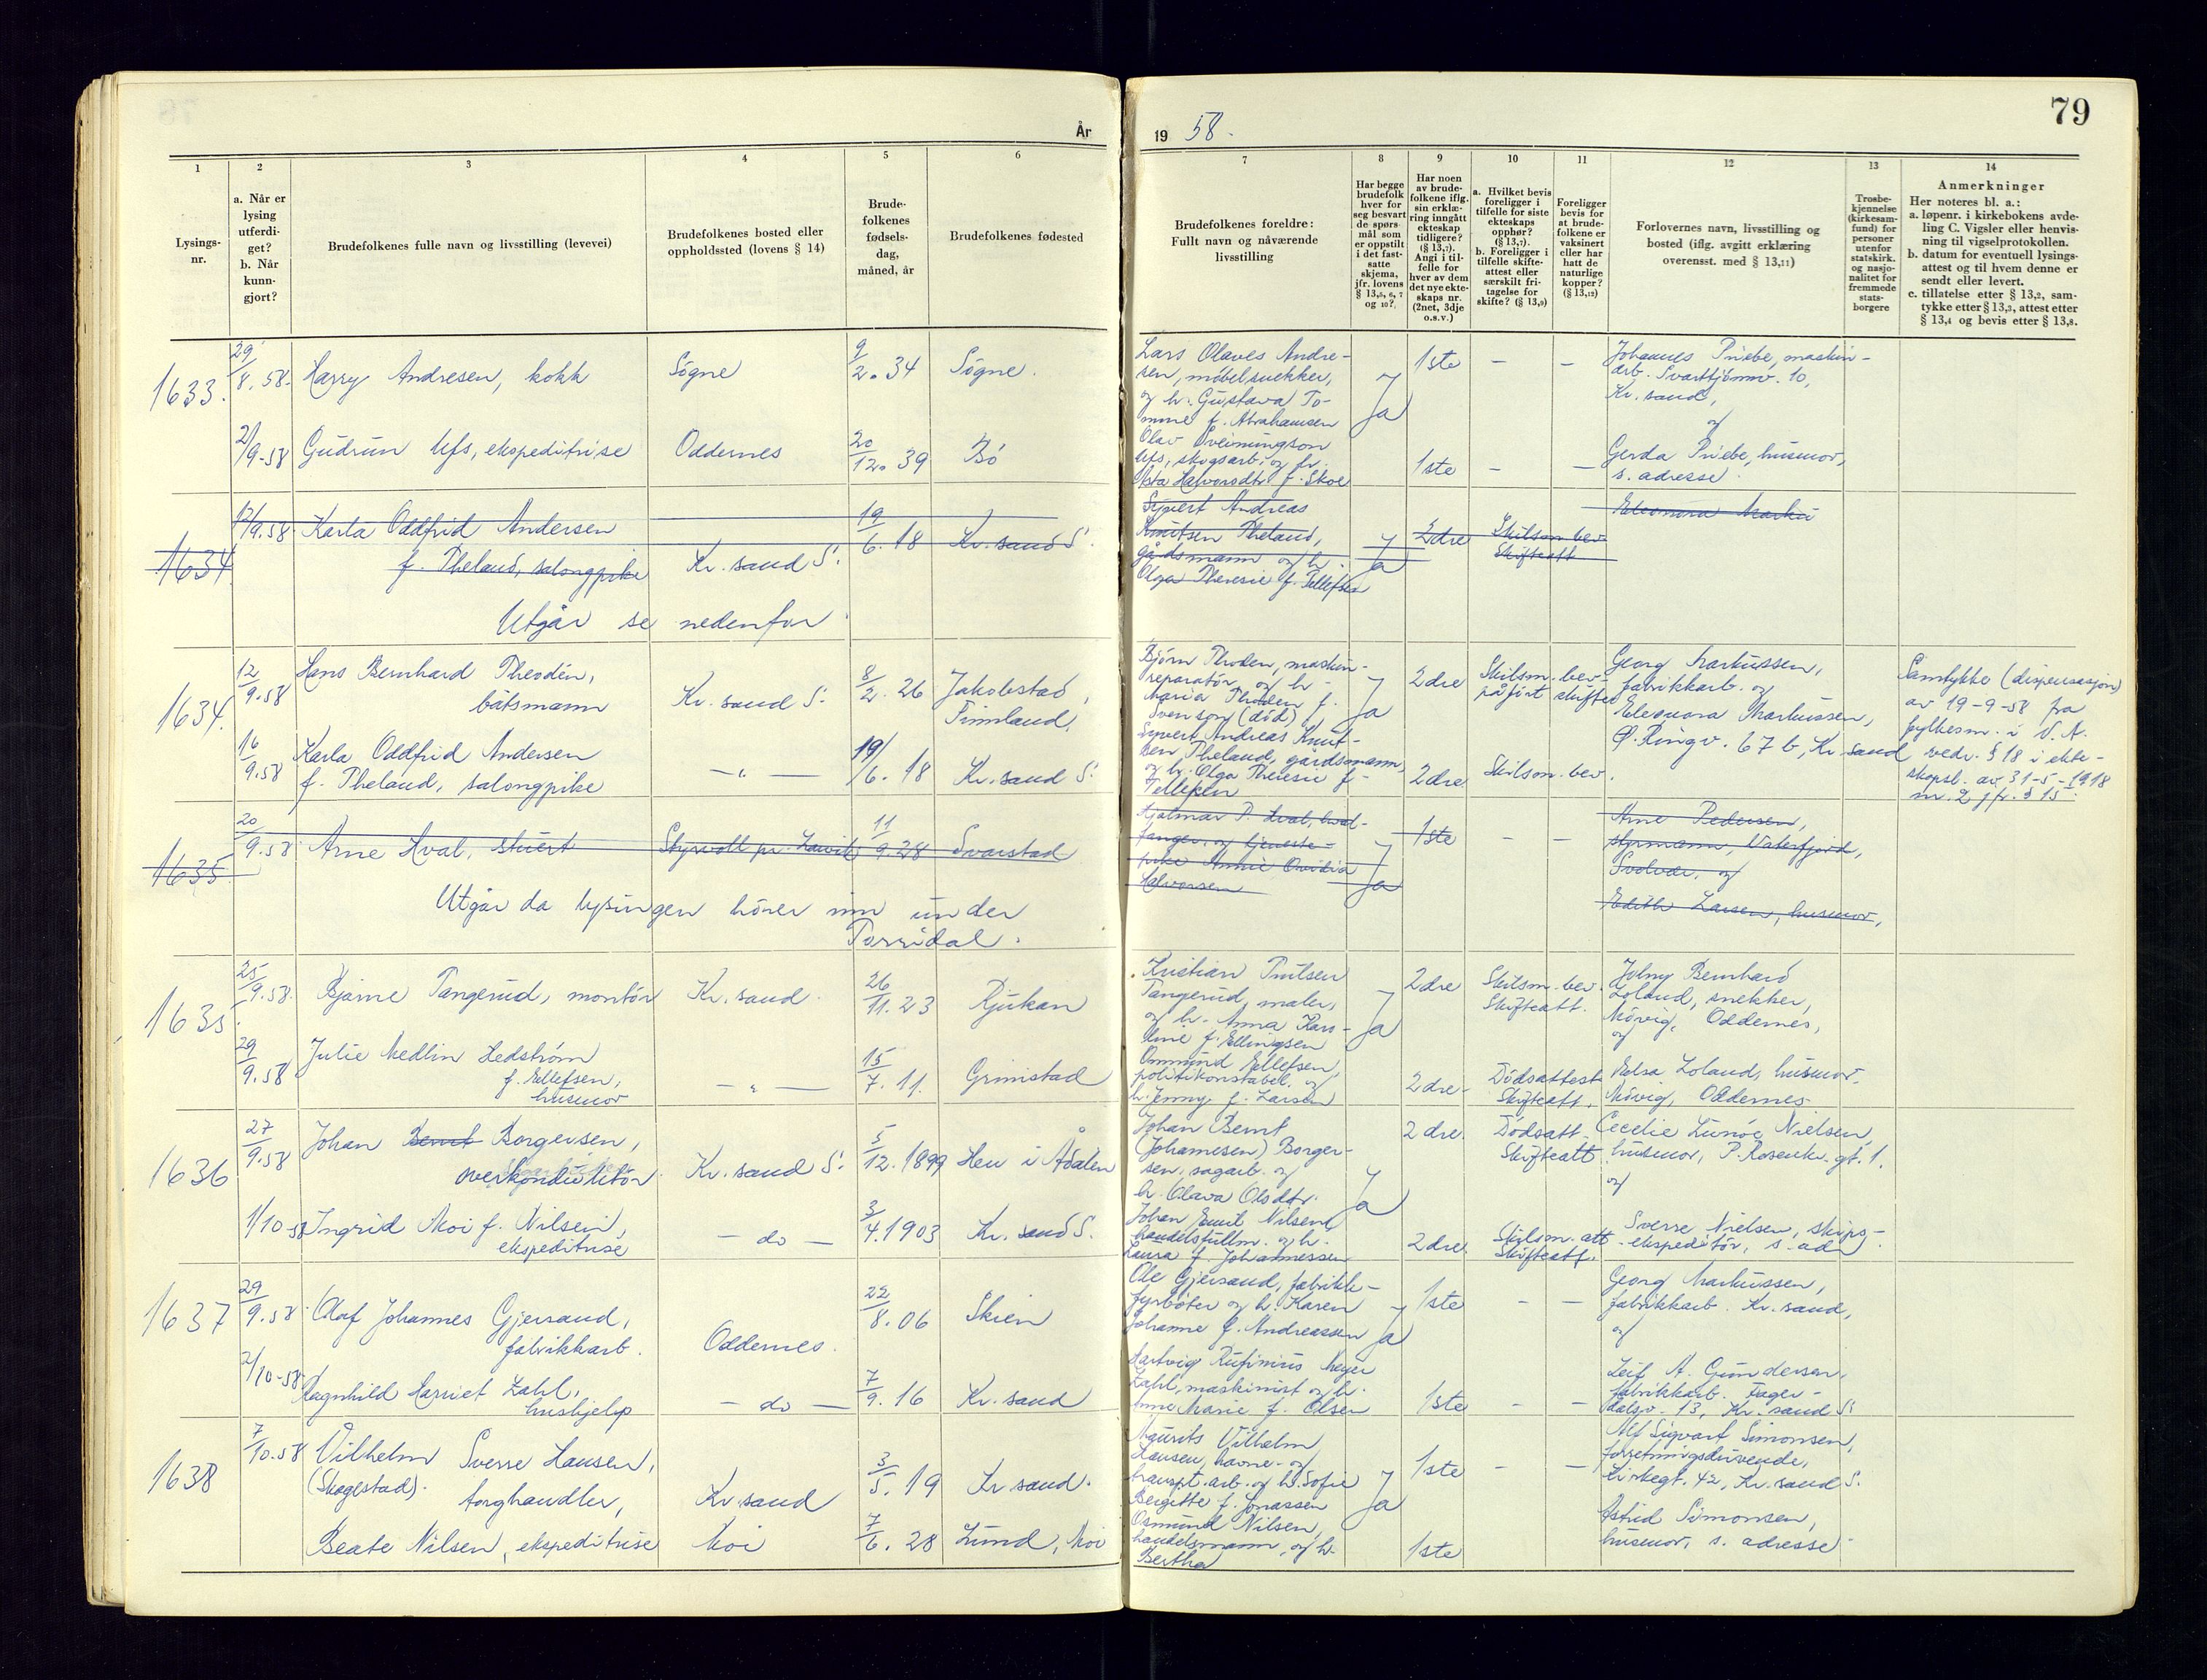 År
1
2
3
4
5
6
Lysings-
nr.
a. Når er
lysing
utferdi-
get?
b. Når
kunn-
gjort?
Brudefolkenes fulle navn og livsstilling (levevei)
Brudefolkenes bosted eller
oppholdssted (lovens § 14)
Brude-
folkenes
fødsels-
dag,
måned, år
Brudefolkenes fødested
1633.
29/8.58.
Harry Andresen, kokk
Søgne
9/2. 34
Søgne.
2/9-58
Gudrun Ufs, ekspeditrise
Oddernes
20/12. 39
Bø
1634
12/9.58
Karla Oddfrid Andersen
f. Theland, salongpike
Kr. sand S.
19/6.18
Kr. sand S.
Utgår se nedenfor.
1634.
12/9.58
Hans Bernhard Theodén,
båtsmann
Kr. sand S.
8/2. 26
Jakobstad,
Finnland.
16/9.58
Karla Oddfrid Andersen
f. Theland, salongpike
— " —
19/6. 18
Kr. sand S.
1635.
20/9.58
Arne Hval, stuert
Styrvoll pr. Larvik
11/9.28
Svarstad
Utgår da lysingen hører inn under
Torridal.
1635.
25/9.58.
Bjarne Tangerud, montør
Kr. sand.
26/11.23
Rjukan
29/9.58
Julie Medlin Hedstrøm
f. Ellefsen,
husmor
— " —
15/7. 11.
Grimstad
1636
27/9.58
Johan Bernt Borgersen,
overkonduktør.
Kr. sand S.
5/12.1899
Hen i Ådalen
1/10-58
Ingrid Moi f. Nilsen,
ekspeditrise
— do —
3/4.1903
Kr. sand S.
1637
29/9.58
Olaf Johannes Gjersand,
fabrikkarb.
Oddernes.
22/8.06
Skien
2/10-58
Ragnhild Harriet Zahl,
hushjelp
— do —
7/9. 16
Kr. sand
1638
7/10.58
Vilhelm Sverre Hansen,
(Skogestad).
torghandler,
Kr. sand
3/5. 19
Kr sand.
Beate Nilsen, ekspeditrise
Moi
7/6. 28
Lund, Moi
79
19 58.
7
8
9
10
11
12
13
14
Brudefolkenes foreldre:
Fullt navn og nåværende
livsstilling
Har begge
brudefolk
hver for
seg besvart
de spørs-
mål som
er oppstilt
i det fast-
satte
skjema,
jfr. lovens
§ 13,5, 6, 7
og 10?
Har noen
av brude-
folkene iflg.
sin erklæ-
ring inngått
ekteskap
tidligere?
(§ 13,7).
Angi i til-
felle for
hver av dem
det nye ekte-
skaps nr.
(2net, 3dje
o.s.v.)
a. Hvilket bevis
foreligger i
tilfelle for siste
ekteskaps
opphør?
(§ 13,7).
b. Foreligger i
tilfelle skifte-
attest eller
særskilt fri-
tagelse for
skifte? (§ 13,9)
Foreligger
bevis for
at brude-
folkene er
vaksinert
eller har
hatt de
naturlige
kopper?
(§ 13,12)
Forlovernes navn, livsstilling og
bosted (iflg. avgitt erklæring
overensst. med § 13,11)
Trosbe-
kjennelse
(kirkesam-
fund) for
personer
utenfor
statskirk.
og nasjo-
nalitet for
fremmede
stats-
borgere
Anmerkninger
Her noteres bl. a.:
a. løpenr. i kirkebokens avde-
ling C. Vigsler eller henvis-
ning til vigselprotokollen.
b. datum for eventuell lysings-
attest og til hvem denne er
sendt eller levert.
c. tillatelse etter § 13,2, sam-
tykke etter § 13,3, attest etter
§ 13,4 og bevis etter § 13,8.
Lars Olaves Andre-
sen, møbelsnekker,
og h. Gustava To-
mine f. Abrahamsen
Ja
1ste
—
—
Johannes Priebe, maskin-
arb. Svarttjønnv. 10,
Kr. sand,
og
Olav Sveinungson
Ufs, skogsarb. og h.
Åsta Halvorsdtr f. Skoe
1ste
—
—
Gerda Priebe, husmor,
s. adresse.
Syvert Andreas
Knutsen Theland,
gårdsmann og h.
Olga Theresie f. Tellefsen
Ja
2dre
Skilsm. bev
Skifteatt
Eleonora Marku
Bjørn Thoden, maskin-
reparatør, og h.
Maria Thoden f.
Svenson (død)
Ja
2dre
Skilsm. bev.
påført skifte
Georg Markussen,
fabrikkarb. og
Eleonora Markussen,
Ø. Ringv. 67 b, Kr sand
Samtykke (dispensasjon)
av 19-9-58 fra
fylkesm. i V. A.
vedr. § 18 i ekte-
skapsl. av 31-5-1918
nr. 2 jfr. § 15.
Syvert Andreas Knut-
sen Theland, gårdsmann,
og h. Olga Theresie f.
Tellefsen
2dre.
Skilsm. bev.
Hjalmar P. Hval, hval-
fanger, og tjeneste-
pike Annie Ovidia
Halvorsen
Ja
1ste
—
—
Arne Pedersen,
styrmann, Vaterfjord,
Svolvær, og
Edith Larsen, husmor,
Kristian Paulsen
Tangerud, maler,
og h. Anna Karo-
line f. Ellingsen
Ja
2dre
Skilsm. bev.
Skifteatt.
Johny Bernhard
Loland, snekker,
Møvig, Oddernes,
og
Ommund Ellefsen,
politikonstabel, og
h. Jenny f. Larsen
2dre
Dødsattest
Skifteatt.
Elsa Loland, husmor.
Møvig, Oddernes
Johan Bernt
(Johannesen) Borger-
sen, sagarb. og
h. Olava Olsdtr.
Ja
2 dre.
Dødsatt.
Skifteatt.
Cecelie Lunøe Nielsen,
husmor, P. Rosenkr. gt. 1.
og
Johan Emil Nilsen,
handelsfullm. og h.
Laura f. Johannessen
2dre.
Skilsm. att
Skifteatt.
Sverre Nielsen, skips-
ekspeditør, s. ad.
Ole Gjersand, fabrikk-
fyrbøter og h. Karen
Johanne f. Andreassen
Ja
1ste
—
—
Georg Markussen,
fabrikkarb. Kr. sand,
og
Hartvig Rufinius Meyer
Zahl, maskinist og h.
Anne Marie f. Olsen
1ste
—
—
Leif A. Gundersen,
fabrikkarb. Fager-
dalsv. 13, Kr. sand S.
Maurits Vilhelm
Hansen, havne- og
transpt. arb. og h. Sofie
Bergitte f. Jonassen
Ja
1ste
—
—
Alf Sigvart Simonsen,
forretningsdrivende,
Kirkegt. 42, Kr. sand S.
Osmund Nilsen,
handelsmann, og h.
Bertha
1ste
Astrid Simonsen,
husmor, s. adresse